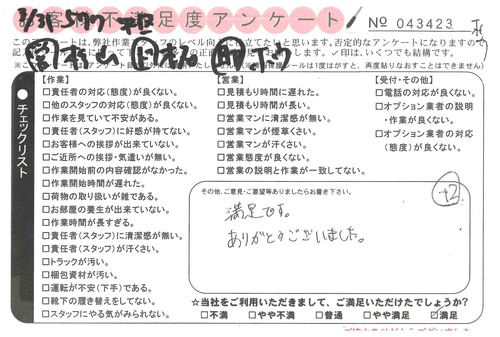 不満足度アンケート
№ 043423
【作業】
□責任者の対応(態度)が良くない。
□他のスタッフの対応(態度)が良くない。
□作業を見ていて不安がある。
□責任者(スタッフ)に好感が持てない。
□お客様への挨拶が出来ていない。
□ご近所への挨拶・気遣いが無い。
□作業開始前の内容確認がなかった。
□作業開始時間が遅れた。
□荷物の取り扱いが雑である。
□お部屋の養生が出来ていない。
□作業時間が長すぎる。
□責任者(スタッフ)に清潔感が無い。
□責任者(スタッフ)が汗くさい。
□トラックが汚い。
□梱包資材が汚い。
□運転が不安(下手)である。
□靴下の履き替えをしてない。
□スタッフにやる気がみられない。
【営業】
□見積もり時間に遅れた。
□見積もり時間が長い。
□営業マンに清潔感が無い。
□営業マンが煙草くさい。
□営業マンが汗くさい。
□営業態度が良くない。
□営業の説明と作業が一致してない。
【受付・その他】
□電話の対応が良くない。
□オプション業者の説明
・作業が良くない。
□オプション業者の対応
(態度)が良くない。
チェックリスト
その他、ご意見・ご要望等ありましたらお書き下さい。
+2
満足です。
ありがとうございました。
☆当社をご利用いただきまして、ご満足いただけたでしょうか?
□不満 □やや不満 □普通 □やや満足 ☑満足